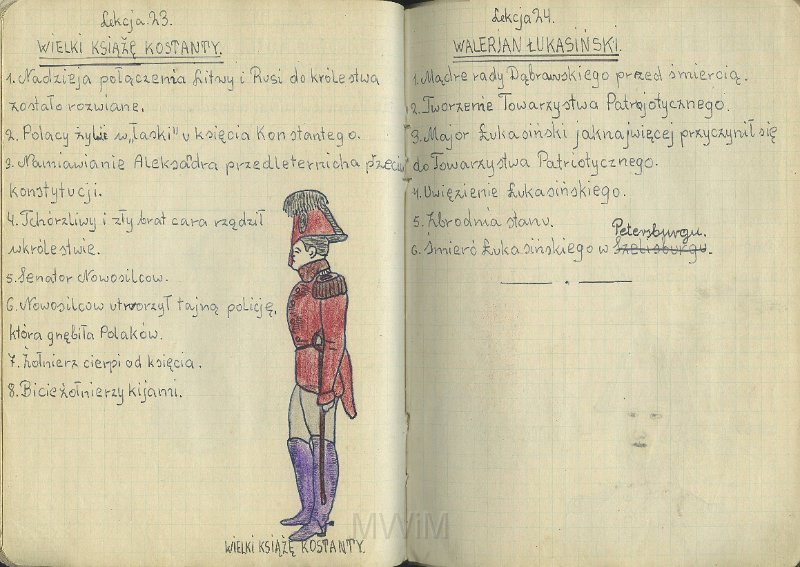 Lekcja.23.
WIELKI KSIĄŻĘ KOSTANTY.
1. Nadzieja połączenia Litwy i Rusi do królestwa
została rozwiane.
2. Polacy żyli w „łaski" u księcia Konstantego.
3. Namiawianie Aleksadra przed Meternicha przeciw
konstytucji.
4. Tchórzliwy i zły brat cara rządził
w królestwie.
5. Senator Nowosilcow.
6. Nowosilcow utworzył tajną policję,
która gnębiła Polaków.
7. Żołnierz cierpi od księcia.
8. Bicie żołnierzy kijami.
WIELKI KSIĄŻĘ KOSTANTY.
Lekcja 24.
WALERJAN ŁUKASIŃSKI.
1. Mądre rady Dąbrawskiego przed śmiercią.
2. Tworzenie Towarzystwa Patrjotycznego.
3. Major Łukasiński jaknajwięcej przyczynił się
do Towarzystwa Patriotycznego.
4. Uwięzienie Łukasińskiego.
5. Zbrodnia stanu.
Petersburgu.
6. Śmierć Łukasińskiego w
MWiM